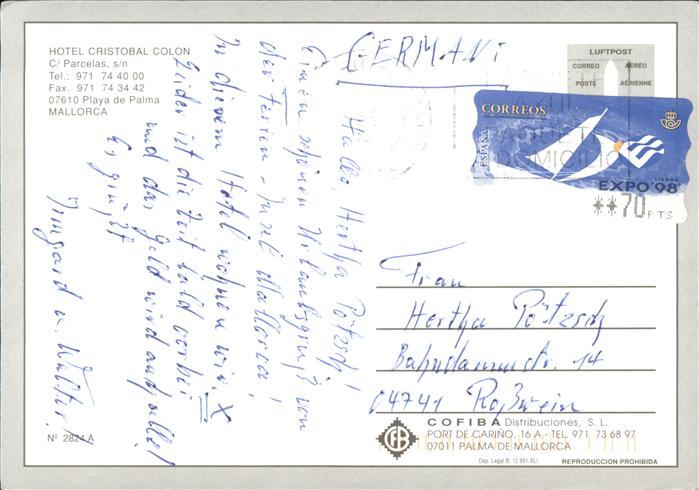 HOTEL CRISTOBAL COLON
C/ Parcelas, s/n
Tel.: 971 74 40 00
Fax. 971 74 34 42
07610 Playa de Palma
MALLORCA
GERMANI
LUFTPOST
CORREO AÉREO
POSTE AÉRIENNE
CORREOS
ESPAÑA
A DOMICILIO
LISBOA
EXPO'98
**70 PTS
Hallo, Hertha Pötzsch!
Einen schönen Urlaubsgruß von
der Ferien-Insel Mallorca!
In diesem Hotel wohnen wir. X
Leider ist die Zeit bald vorbei
und das Geld wird auch alle!
Es grüßt
Irmgard u. Walter!
Frau
Hertha Pötzsch
Bahndammstr. 14
04741 Roßwein
Nº 2824 A
CB
COFIBA Distribuciones, S. L.
PORT DE CARIÑO, 16 A - TEL. 971 73 68 97
07011 PALMA DE MALLORCA
Dep. Legal B. 12.891-XLI
REPRODUCCION PROHIBIDA